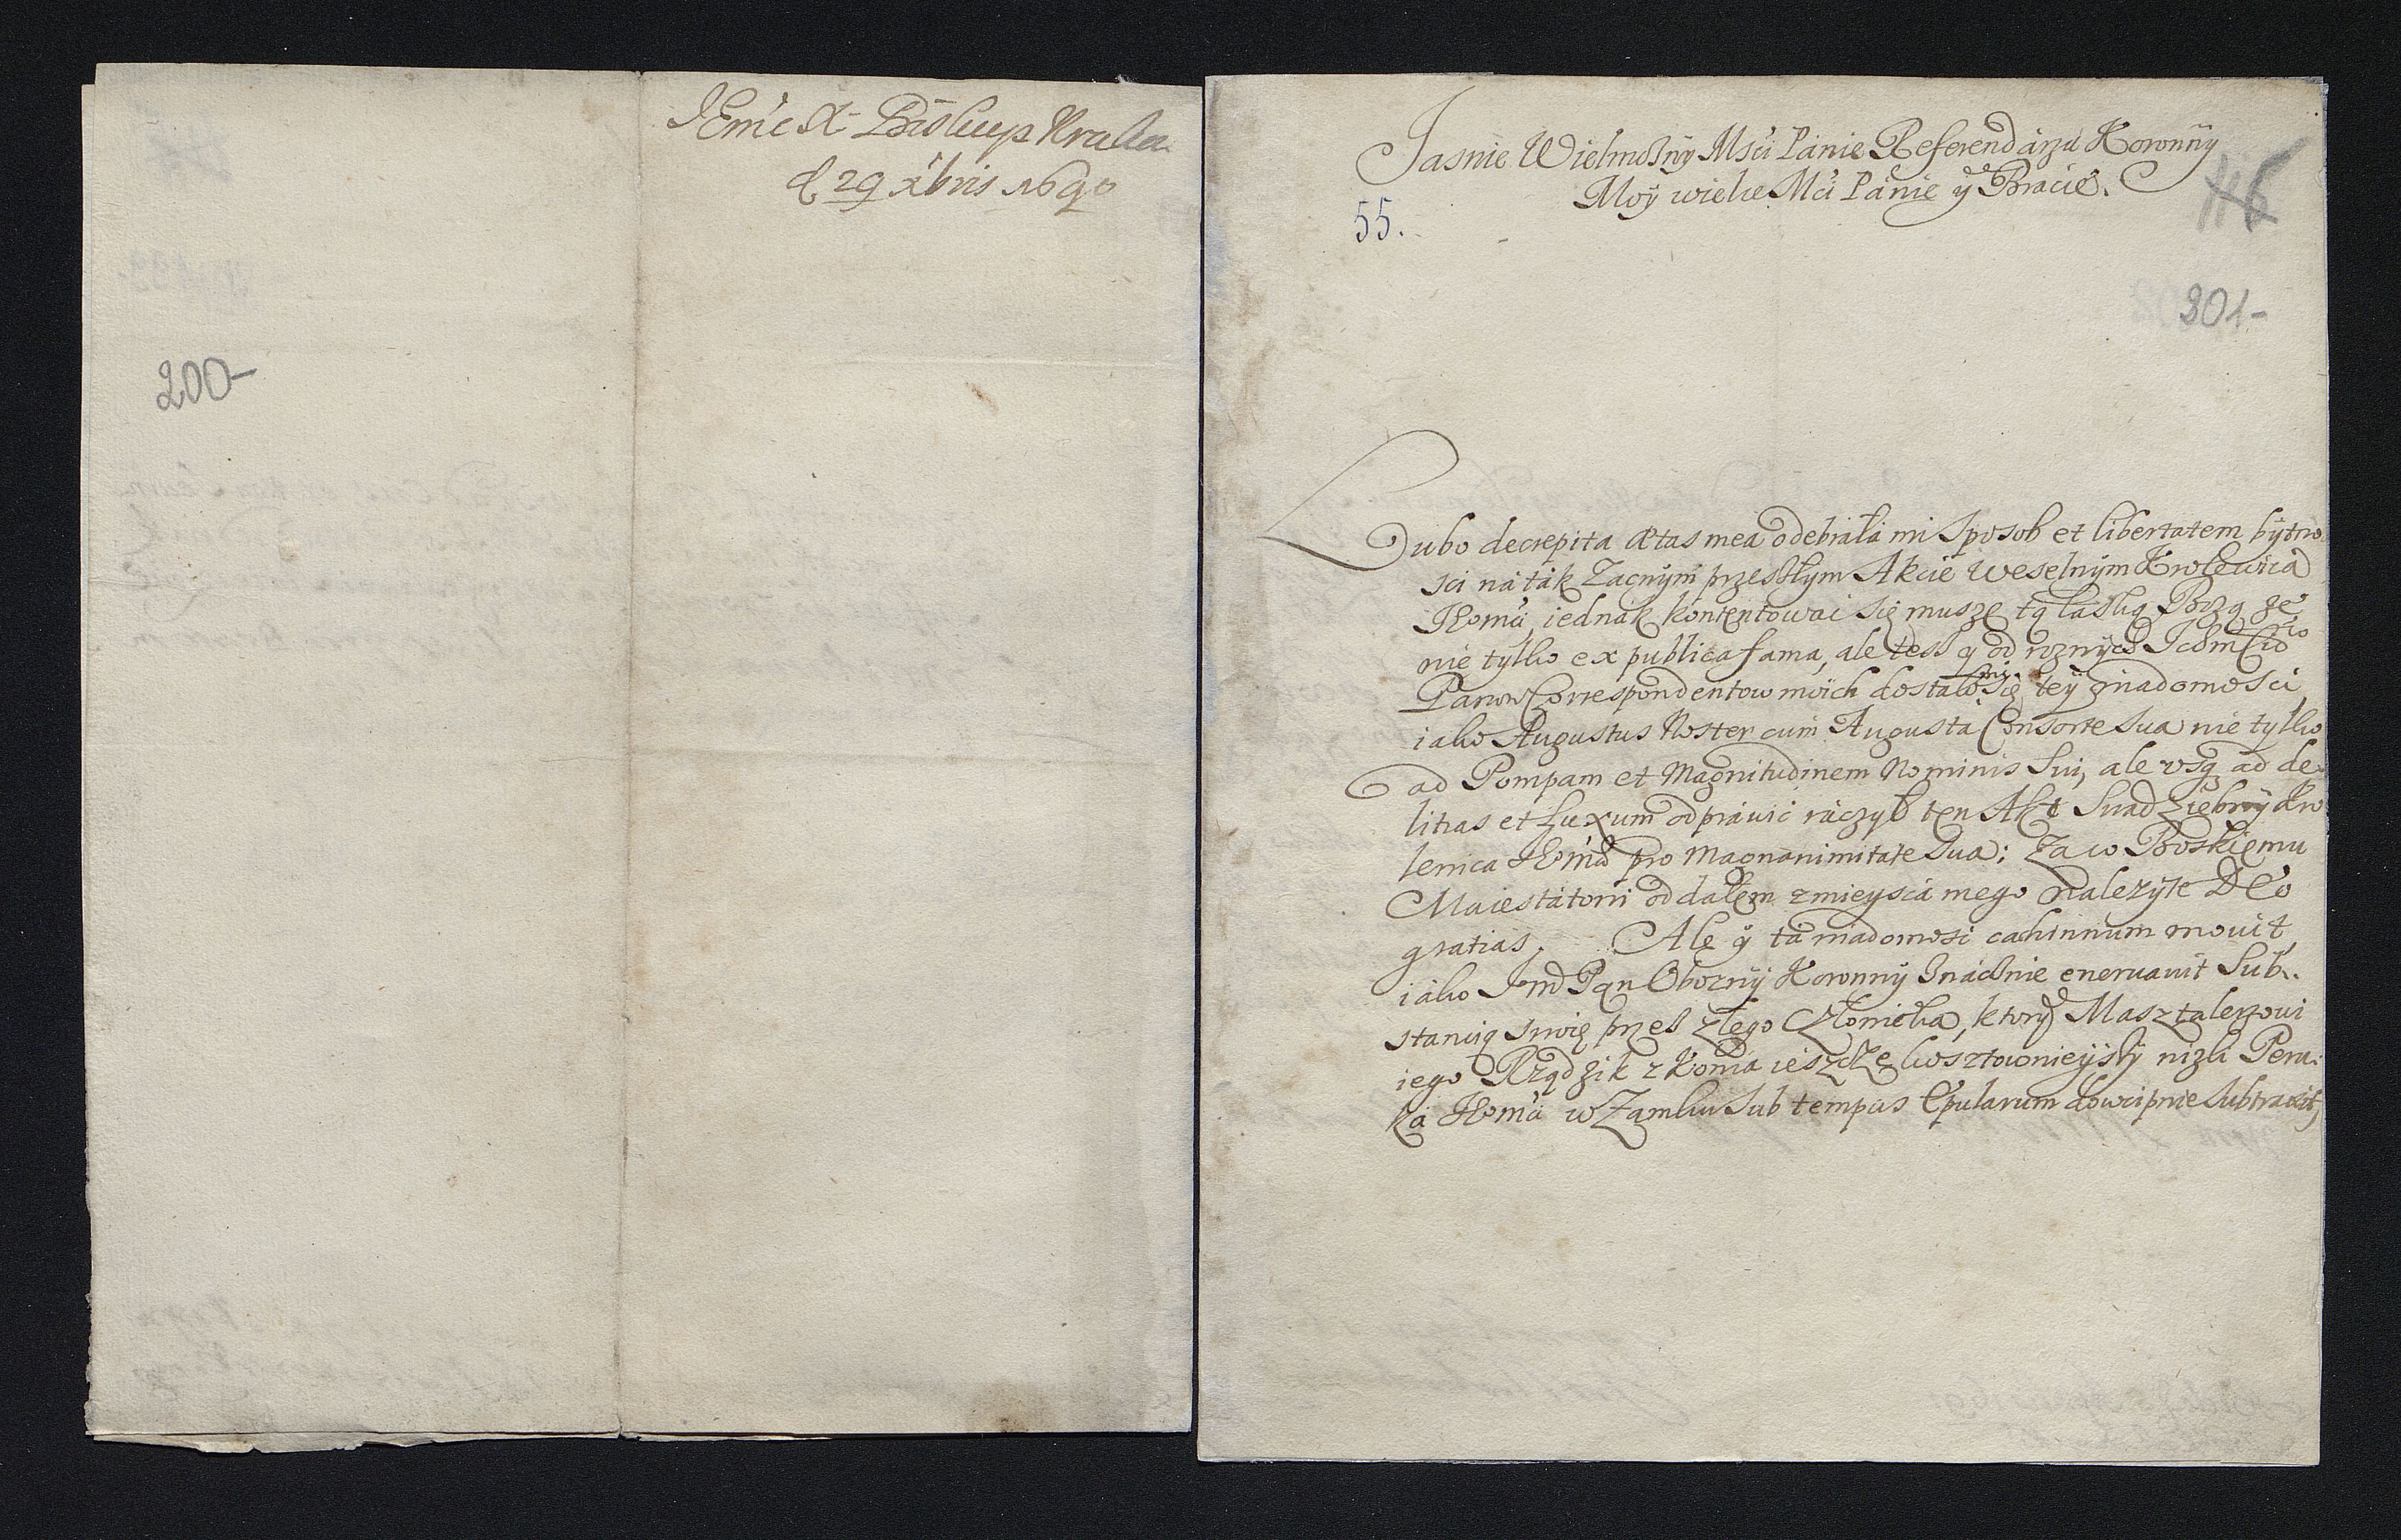 JEmć X Biskup Kraka
d 29 Xbris 1690
200-
Jasnie Wielmożny Msci Panie Referendarzu Koronny
Moy wielce Mci Panie y Bracie.
55.
116
201-
Lubo decrepita ætas mea odebrała mi sposob et libertatem bytno
sci na tak Zacnym przeszłym Akcie Weselnym Krolewica
JKomci, iednak kontentować się muszę tą łaską Bozą że
nie tylko ex publica fama, ale tesz y od roznych Ichmscio
Panow Correspondentow moich dostało mi się tey wiadomosci
iako Augustus Noster cum Augusta Consorte sua nie tylko
ad Pompam et Magnitudinem Nominis Sui, ale usq ad de
litias et Luxum odprawić raczył ten Akt Swadziebny Kro
lewica JKomci pro Magnanimitate sua: Za co Boskiemu
Maiestatowi oddałem z mieysca mego nalezyte DEo
gratias. Ale y ta wiadomosc cachinnum movit,
iako Jmć Pan Obozny Koronny Znacznie enervavit Sub
stancią swoię przez złego Człowieka, ktory Masztalerzowi
iego Rządzik z Konia ieszcze kosztownieyszy nizli Peru
ka JKomci w Zamku sub tempus Epularum dowcipnie subtraxit,